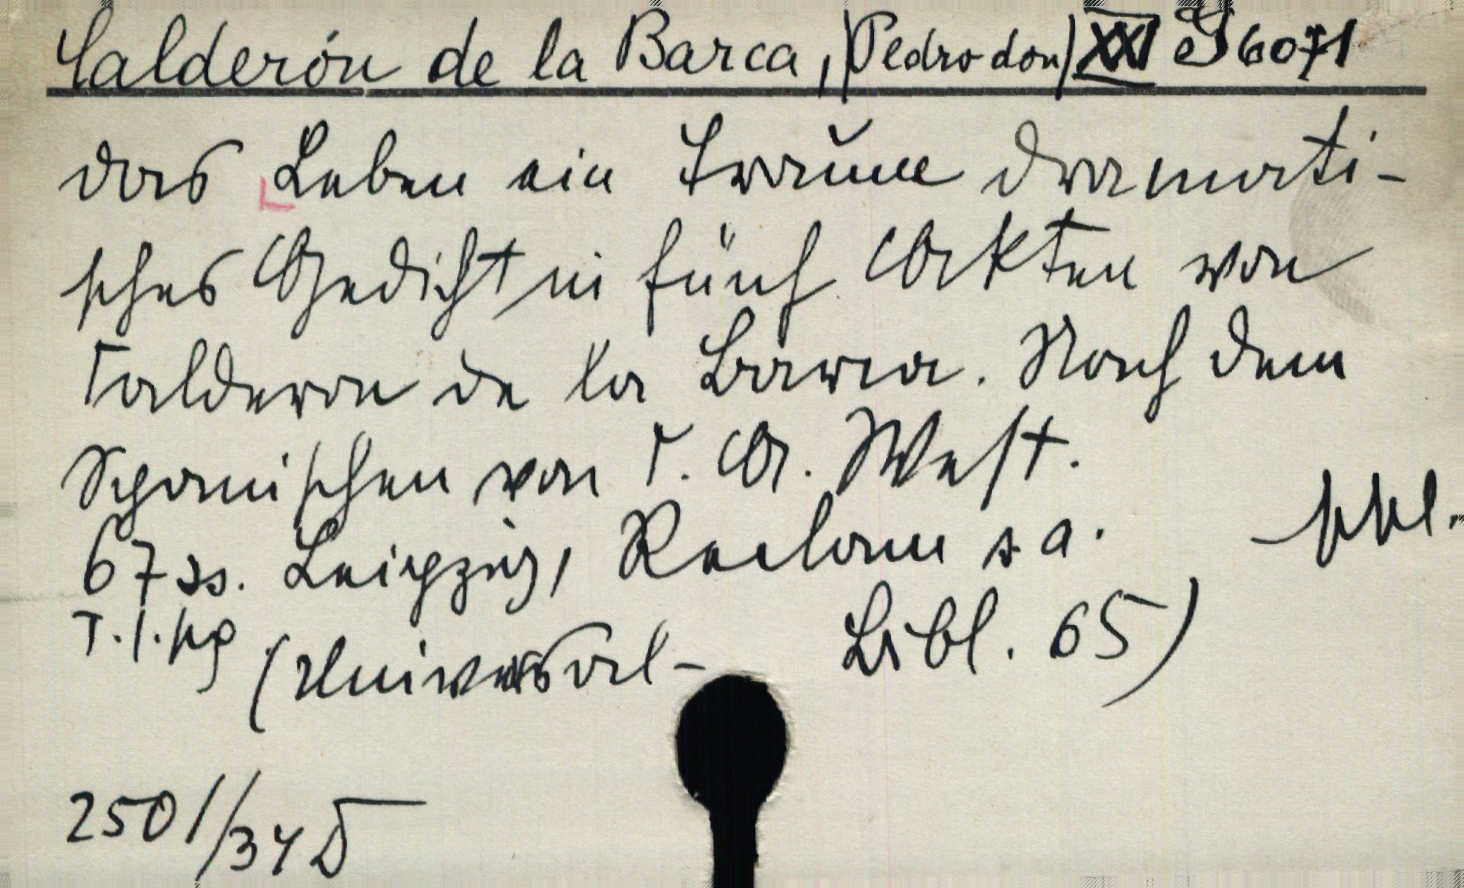 Calderón de la Barca, (Pedro don) XXI 6071
das Leben ein Traum dramati-
sches Gedicht in fünf Akten von
Calderon de la Barca. Nach dem
Spanischen von C. A. West.
67 ss. Leipzig, Reclam s a.
(Universal- Bibl. 65)
2501/34